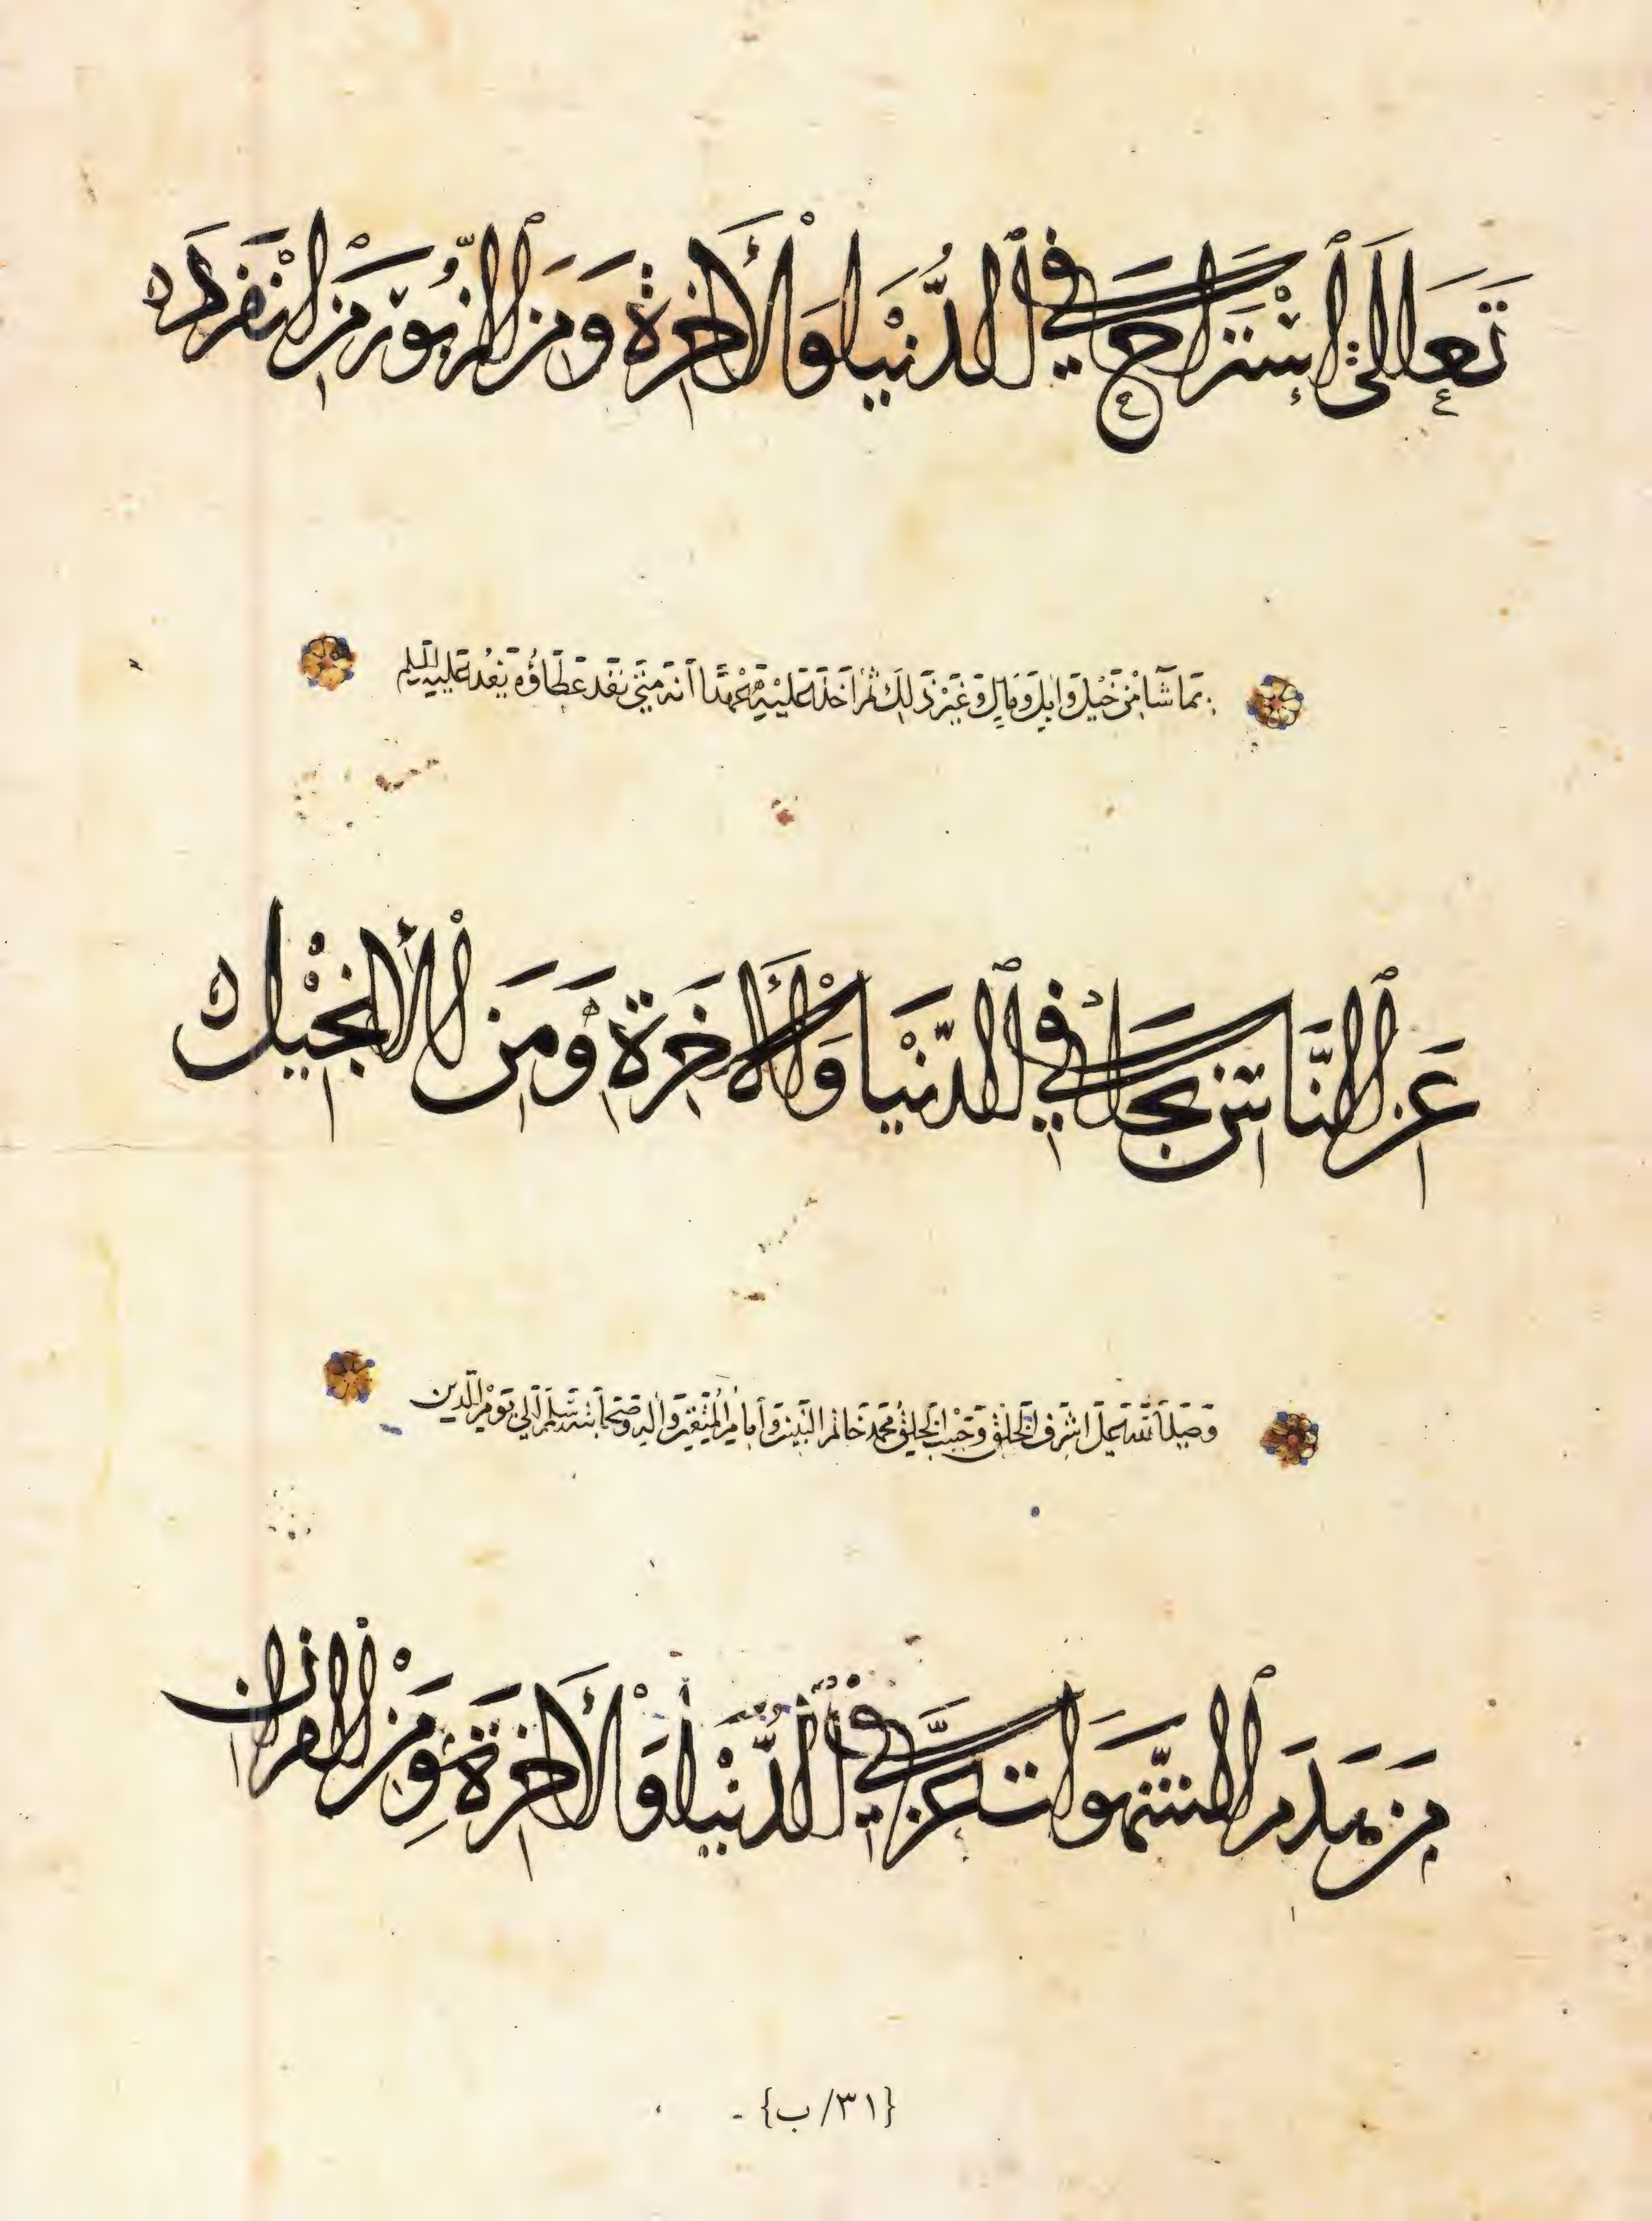 تَعَالَى اسْتَرَاحَ فِي الدُّنْيَا وَالْأَخِرَةِ وَمِنَ الزَّبُورِ مَنِ انْفَرَدَ
بما شا من خيل وابل ومال وغير ذلك ثم اخذ عليه عهدًا انه متى نفد عطاؤه يفد عليه
عَنِ النَّاسِ نَجَا فِي الدُّنْيَا وَالْأَخِرَةِ وَمِنَ الْأِنْجِيلِ
وصلى الله على اشرف الخلق وحبيب الحق محمد خاتم النبيين وامام المتقين واله وصحابته وسلم الى يوم الدين
مَنْ هَدَمَ الشَّهَوَاتِ عَزَّ فِي الدُّنْيَا وَالْأَخِرَةِ وَمِنَ الْقُرْآنِ
{٣١/ب} -